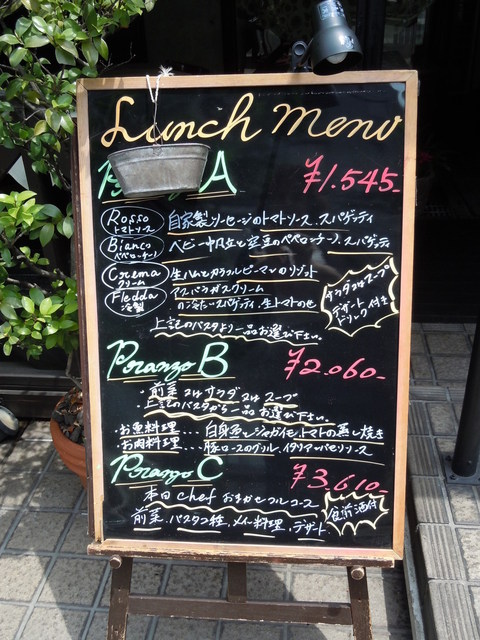 Lunch menu
A ¥1.545-
Rosso トマトソース 自家製ソーセージのトマトソース、スパゲッティ
Bianco ペペロンチーノ ベビー帆立と空豆のペペロンチーノ、スパゲッティ
Crema クリーム 生ハムとカラフルピーマンのリゾット
アスパラガスクリーム
Fledda 冷製 の冷たいスパゲッティ、生トマトのせ
サラダ又はスープ
デザート
ドリンク付き
上記のパスタより一品お選び下さい。
Pranzo B ¥2.060-
・前菜又はサラダ又はスープ
・上記のパスタから一品お選び下さい。
・お魚料理...白身魚とジャガイモ、トマトの蒸し焼き
お肉料理...豚ロースのグリル、イタリアンバルソース
Pranzo C ¥3.610-
本日chefおまかせフルコース
前菜、パスタ2種、メイン料理、デザート
食前酒付